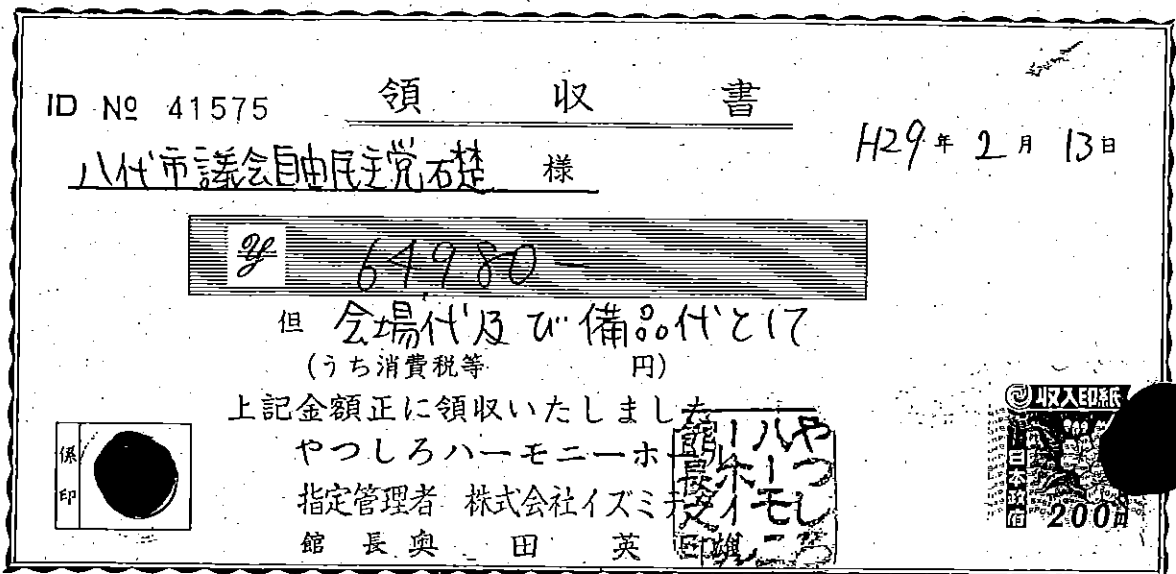 ID № 41575
領収書
H29年2月13日
八代市議会自由民主党石楚 様
¥ 64980-
但 会場代及び備品代として
(うち消費税等 円)
上記金額正に領収いたしました
やつしろハーモニーホール
指定管理者 株式会社イズミテクノ
館長 奥田英
係印
収入印紙
日本政府
200円